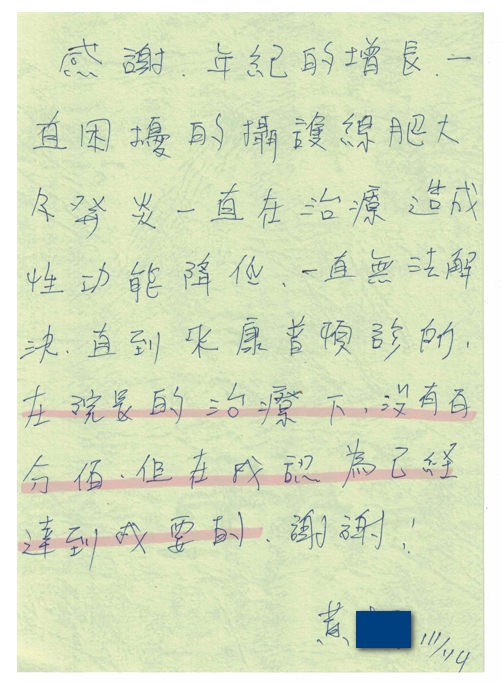 感謝. 年紀的增長. 一
直困擾的攝護線肥大
及發炎一直在治療 造成
性功能降低. 一直無法解
決. 直到來康普頓診所.
在院長的治療下. 沒有百
分佰. 但在我認為已經
達到我要的. 謝謝!
黃 11/14